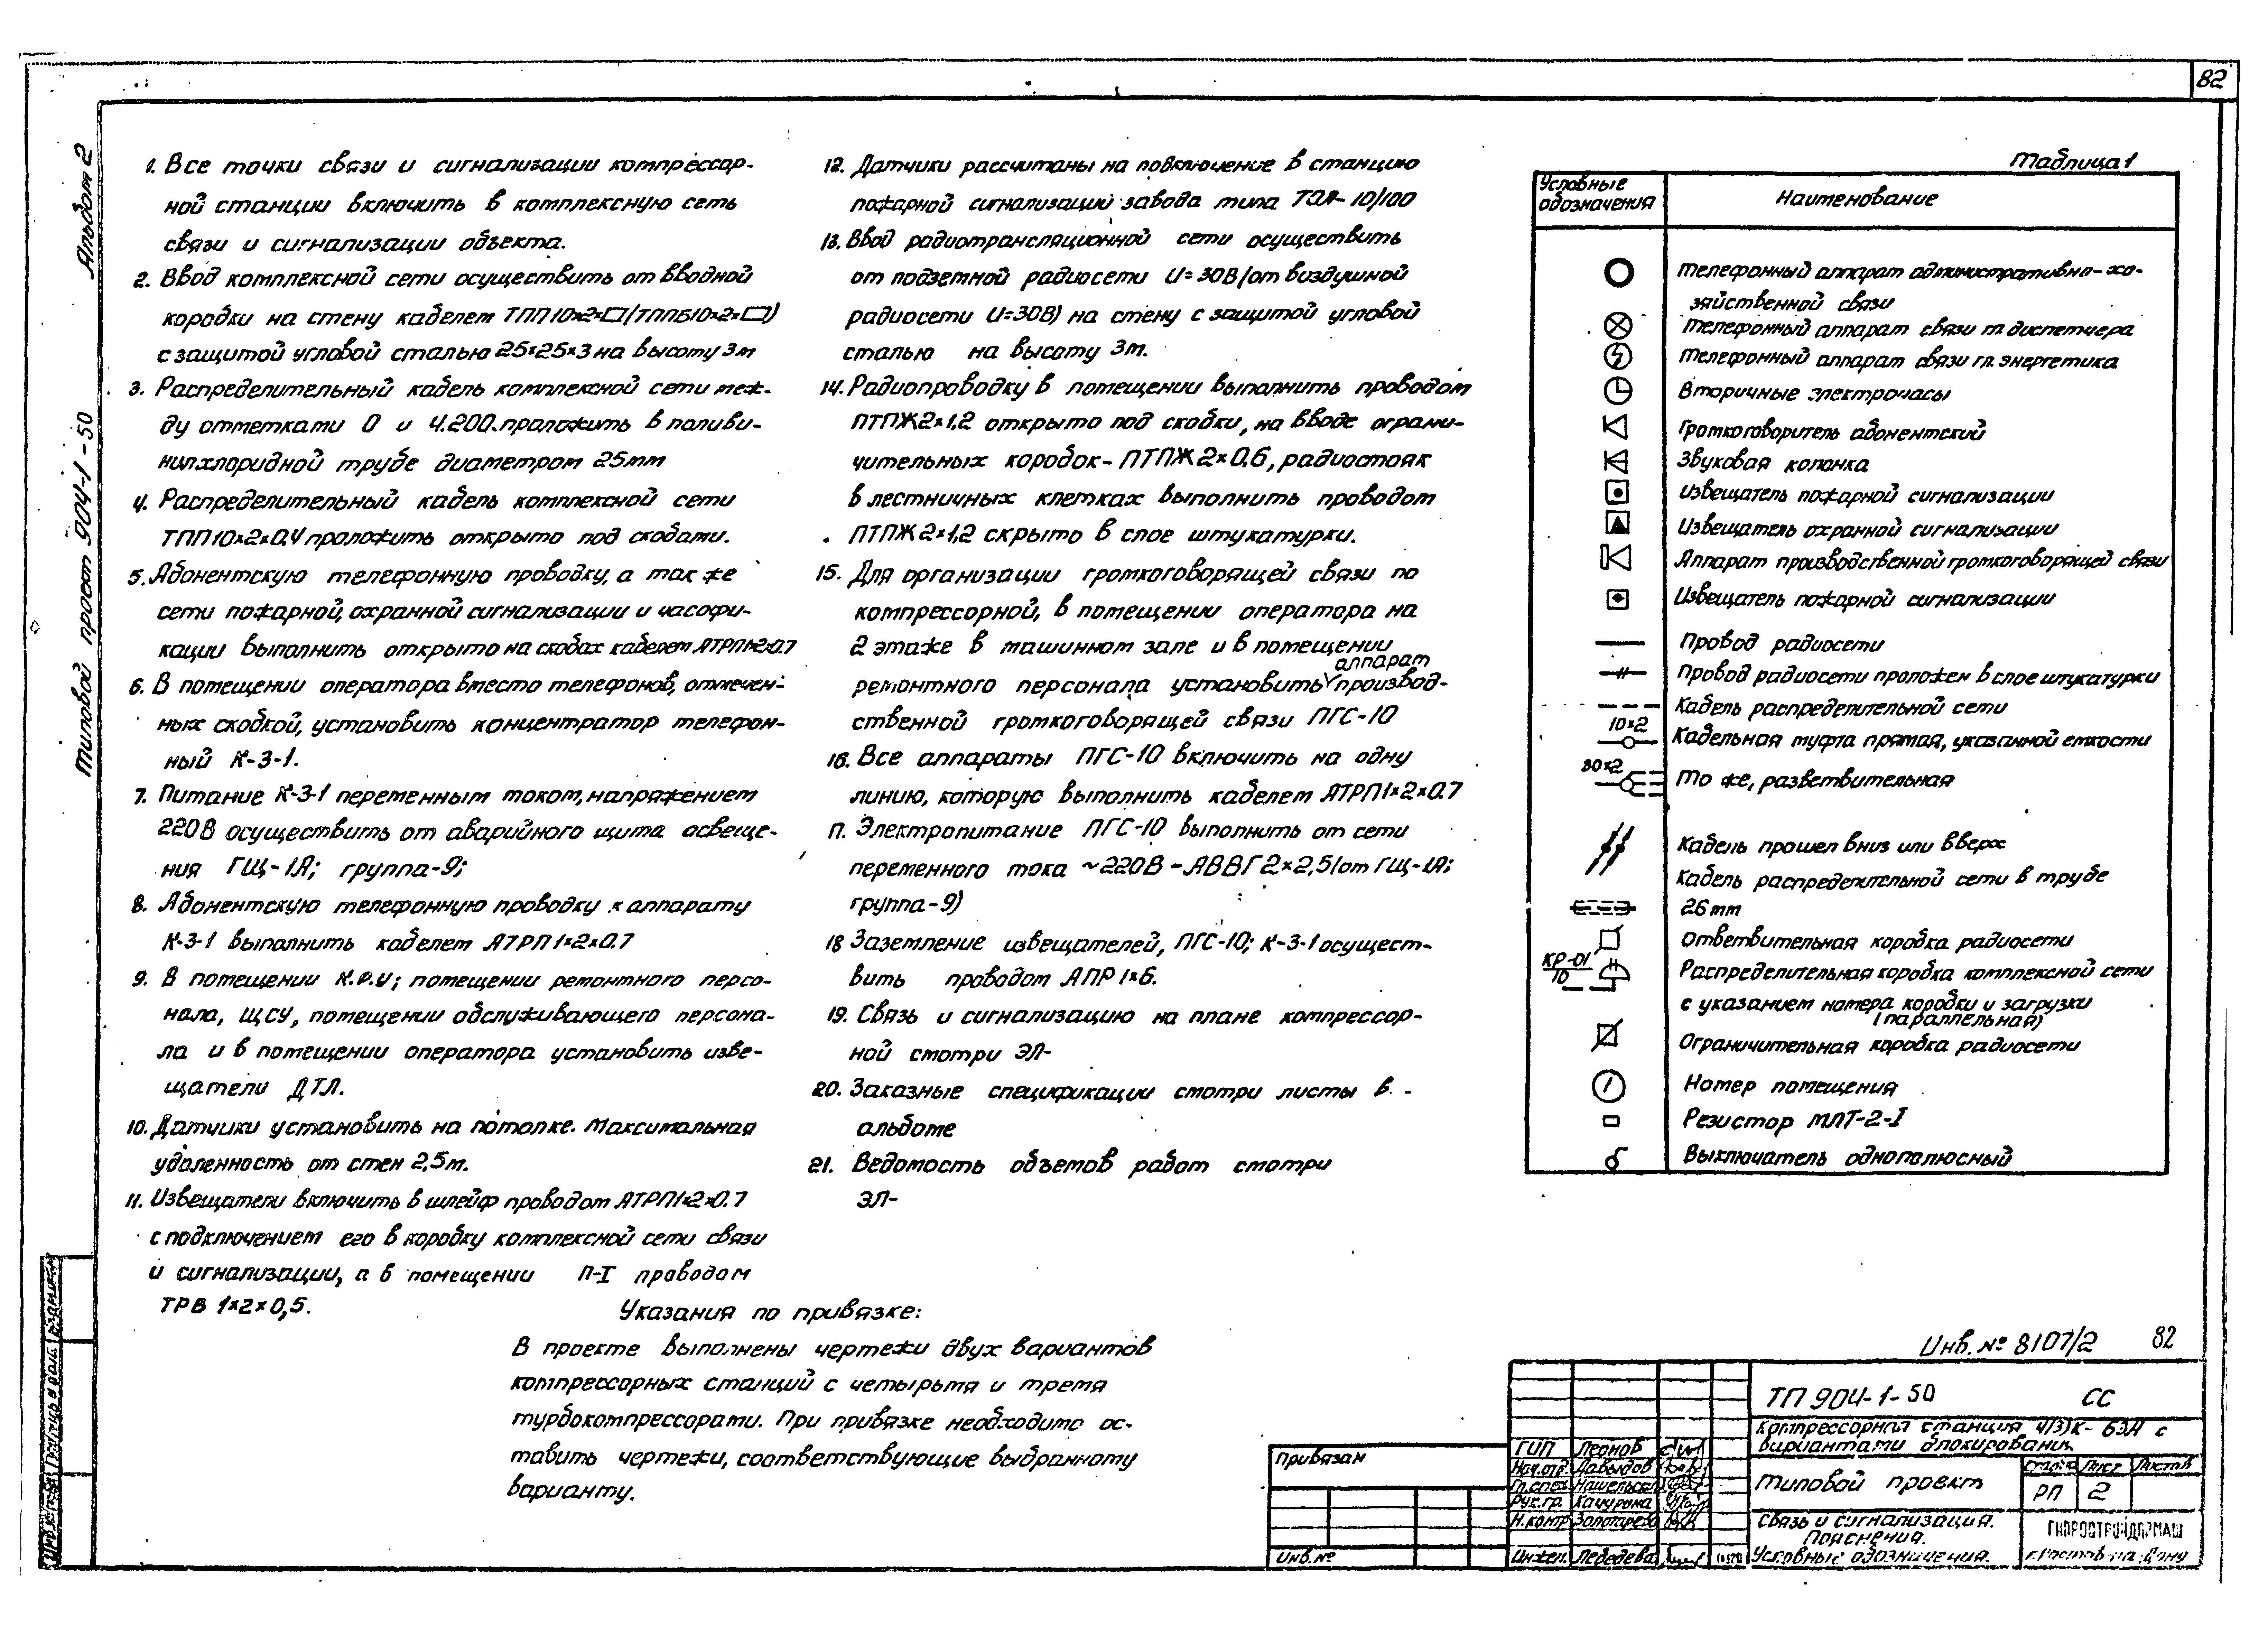 82
Альбом 2
Типовой проект 904-1-50
1. Все точки связи и сигнализации компрессор-
ной станции включить в комплексную сеть
связи и сигнализации объекта.
2. Ввод комплексной сети осуществить от вводной
коробки на стену кабелем ТПП10×2×□(ТППБ10×2×□)
с защитой угловой сталью 25×25×3 на высоту 3м
3. Распределительный кабель комплексной сети меж-
ду отметками 0 и 4.200 проложить в поливи-
нилхлоридной трубе диаметром 25мм
4. Распределительный кабель комплексной сети
ТПП10×2×0.4 проложить открыто под скобами.
5. Абонентскую телефонную проводку, а так же
сети пожарной, охранной сигнализации и часофи-
кации выполнить открыто на скобах кабелем АТРП1×2×0.7
6. В помещении оператора вместо телефонов, отмечен-
ных скобкой, установить концентратор телефон-
ный К-3-1.
7. Питание К-3-1 переменным током, напряжением
220В осуществить от аварийного щита освеще-
ния ГЩ-1А; группа-9;
8. Абонентскую телефонную проводку к аппарату
К-3-1 выполнить кабелем АТРП1×2×0.7
9. В помещении К.Р.У; помещении ремонтного персо-
нала, ЩСУ, помещении обслуживающего персона-
ла и в помещении оператора установить изве-
щатели ДТЛ.
10. Датчики установить на потолке. Максимальная
удаленность от стен 2,5м.
11. Извещатели включить в шлейф проводом АТРП1×2×0.7
с подключением его в коробку комплексной сети связи
и сигнализации, а в помещении П-I проводом
ТРВ 1×2×0,5.
12. Датчики рассчитаны на подключение в станцию
пожарной сигнализации завода типа ТОЛ-10/100
13. Ввод радиотрансляционной сети осуществить
от подземной радиосети U=30В(от воздушной
радиосети U=30В) на стену с защитой угловой
сталью на высоту 3м.
14. Радиопроводку в помещении выполнить проводом
ПТПЖ2×1,2 открыто под скобки, на вводе ограни-
чительных коробок-ПТПЖ2×0,6, радиостояк
в лестничных клетках выполнить проводом
ПТПЖ2×1,2 скрыто в слое штукатурки.
15. Для организации громкоговорящей связи по
компрессорной, в помещении оператора на
2 этаже в машинном зале и в помещении
аппарат
ремонтного персонала установить производ-
ственной громкоговорящей связи ПГС-10
16. Все аппараты ПГС-10 включить на одну
линию, которую выполнить кабелем АТРП1×2×0.7
17. Электропитание ПГС-10 выполнить от сети
переменного тока ~220В-АВВГ2×2,5(от ГЩ-1А;
группа-9)
18 Заземление извещателей, ПГС-10; К-3-1 осущест-
вить проводом АПР1×6.
19. Связь и сигнализацию на плане компрессор-
ной смотри ЭЛ-
20. Заказные спецификации смотри листы в
альбоме
21. Ведомость объемов работ смотри
ЭЛ-
Указания по привязке:
В проекте выполнены чертежи двух вариантов
компрессорных станций с четырьмя и тремя
турбокомпрессорами. При привязке необходимо ос-
тавить чертежи, соответствующие выбранному
варианту.
Таблица 1
Условные
обозначения
Наименование
Телефонный аппарат административно-хо-
зяйственной связи
Телефонный аппарат связи гл. диспетчера
Телефонный аппарат связи гл. энергетика
Вторичные электрочасы
Громкоговоритель абонентский
Звуковая колонка
Извещатель пожарной сигнализации
Извещатель охранной сигнализации
Аппарат производственной громкоговорящей связи
Извещатель пожарной сигнализации
Провод радиосети
Провод радиосети проложен в слое штукатурки
Кабель распределительной сети
10×2
Кабельная муфта прямая, указанной емкости
30×2
То же, разветвительная
Кабель прошел вниз или вверх
Кабель распределительной сети в трубе
26мм
Ответвительная коробка радиосети
КР-01
10
Распределительная коробка комплексной сети
с указанием номера коробки и загрузки
(параллельная)
Ограничительная коробка радиосети
Номер помещения
Резистор МЛТ-2-I
Выключатель однополюсный
Инв. № 8107/2 82
ТП 904-1-50 СС
Компрессорная станция 4(3)К- с
вариантами блокирования.
Типовой проект
Стадия Лист Листов
РП 2
Связь и сигнализация.
Пояснения.
Условные обозначения.
ГИПРОСТРОЙДОРМАШ
г. Ростов-на-Дону
Привязан
Инв. №
ГИП Леонов
Нач.отд. Давыдов
Гл.спец.
Рук.гр. Качурина
Н.контр Золотарева
Инжен. Лебедева